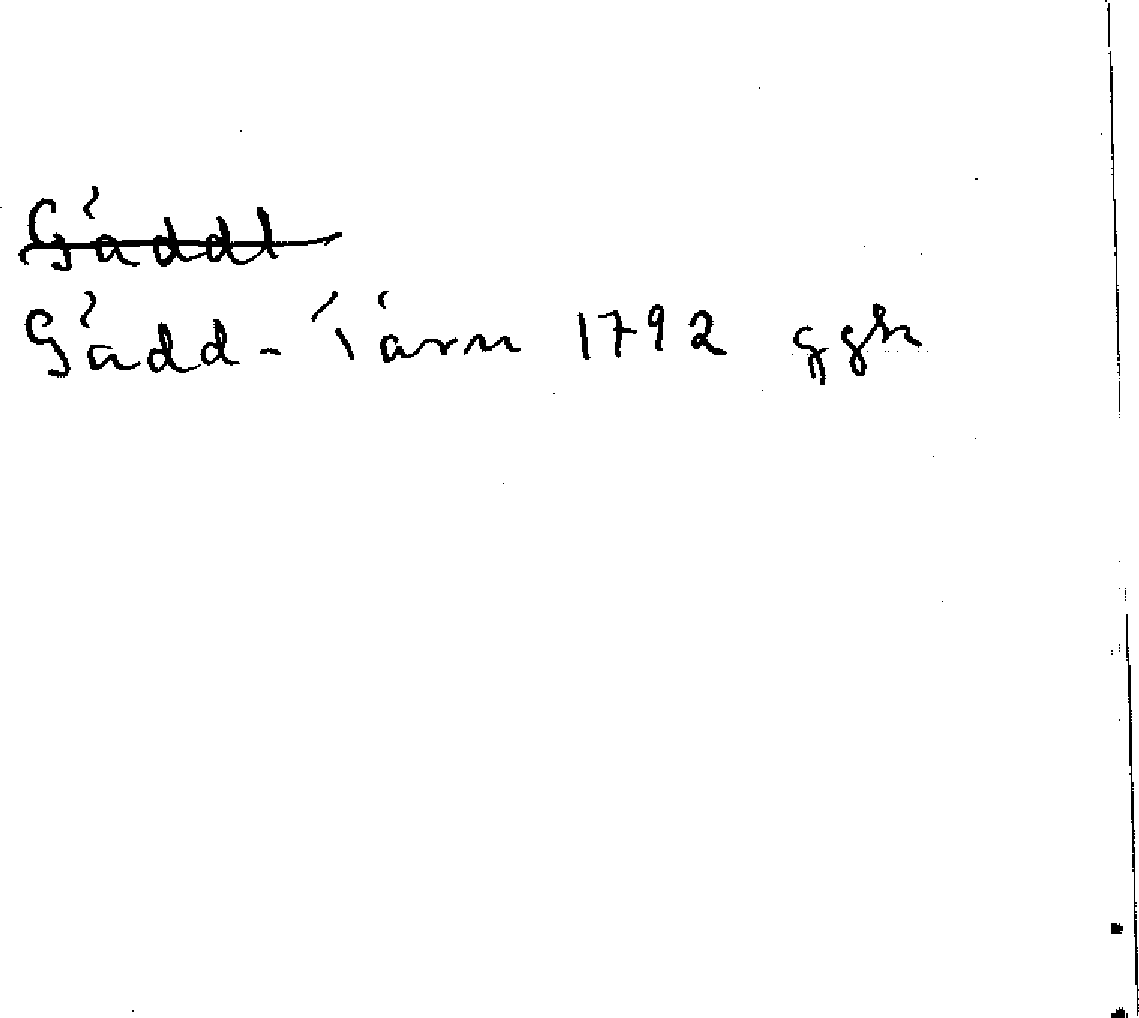 Gäddt
Gädd-Tärn 1792 ggh